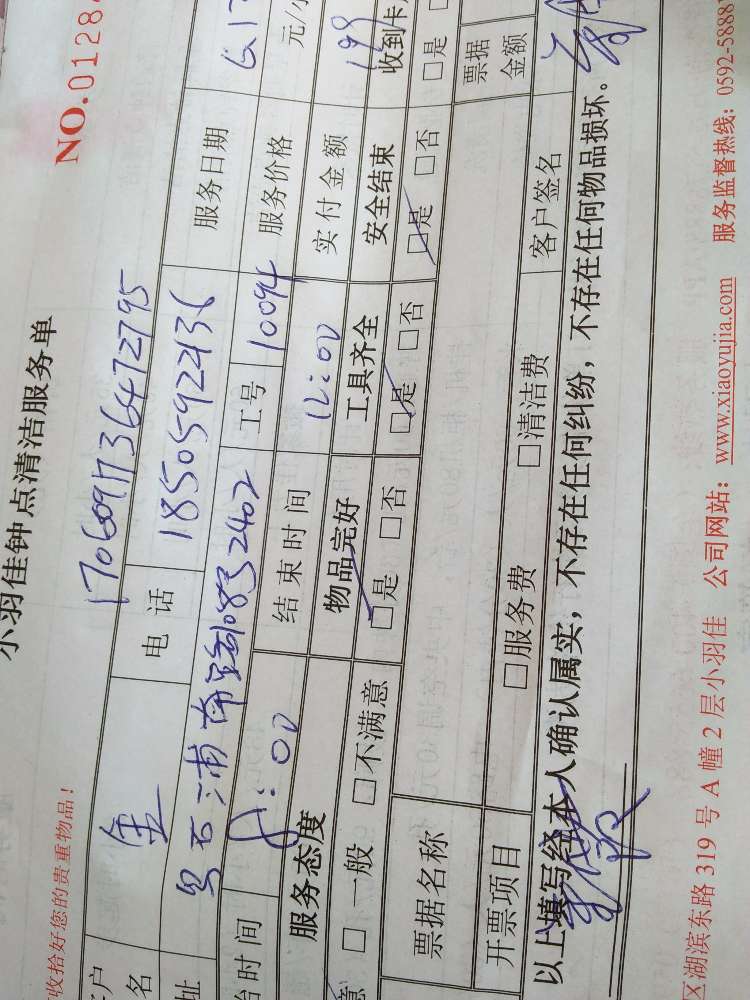 小羽佳钟点清洁服务单
NO.01284
收拾好您的贵重物品!
1706091736472795
户名 金 电话 18505922436 服务日期 6.17
址 吕石浦南路 832402 工号 10094 服务价格 元/小
始时间 8:00 结束时间 12:00 实付金额 199
服务态度 物品完好 工具齐全 安全结束 收到卡
意 □一般 □不满意 □是 □否 □是 □否 □是 □否 □是
票据名称 票据金额
开票项目 □服务费 □清洁费 客户签名
以上填写经本人确认属实,不存在任何纠纷,不存在任何物品损坏。
区湖滨东路 319 号 A 幢 2 层小羽佳 公司网站:www.xiaoyujia.com 服务监督热线:0592-58881